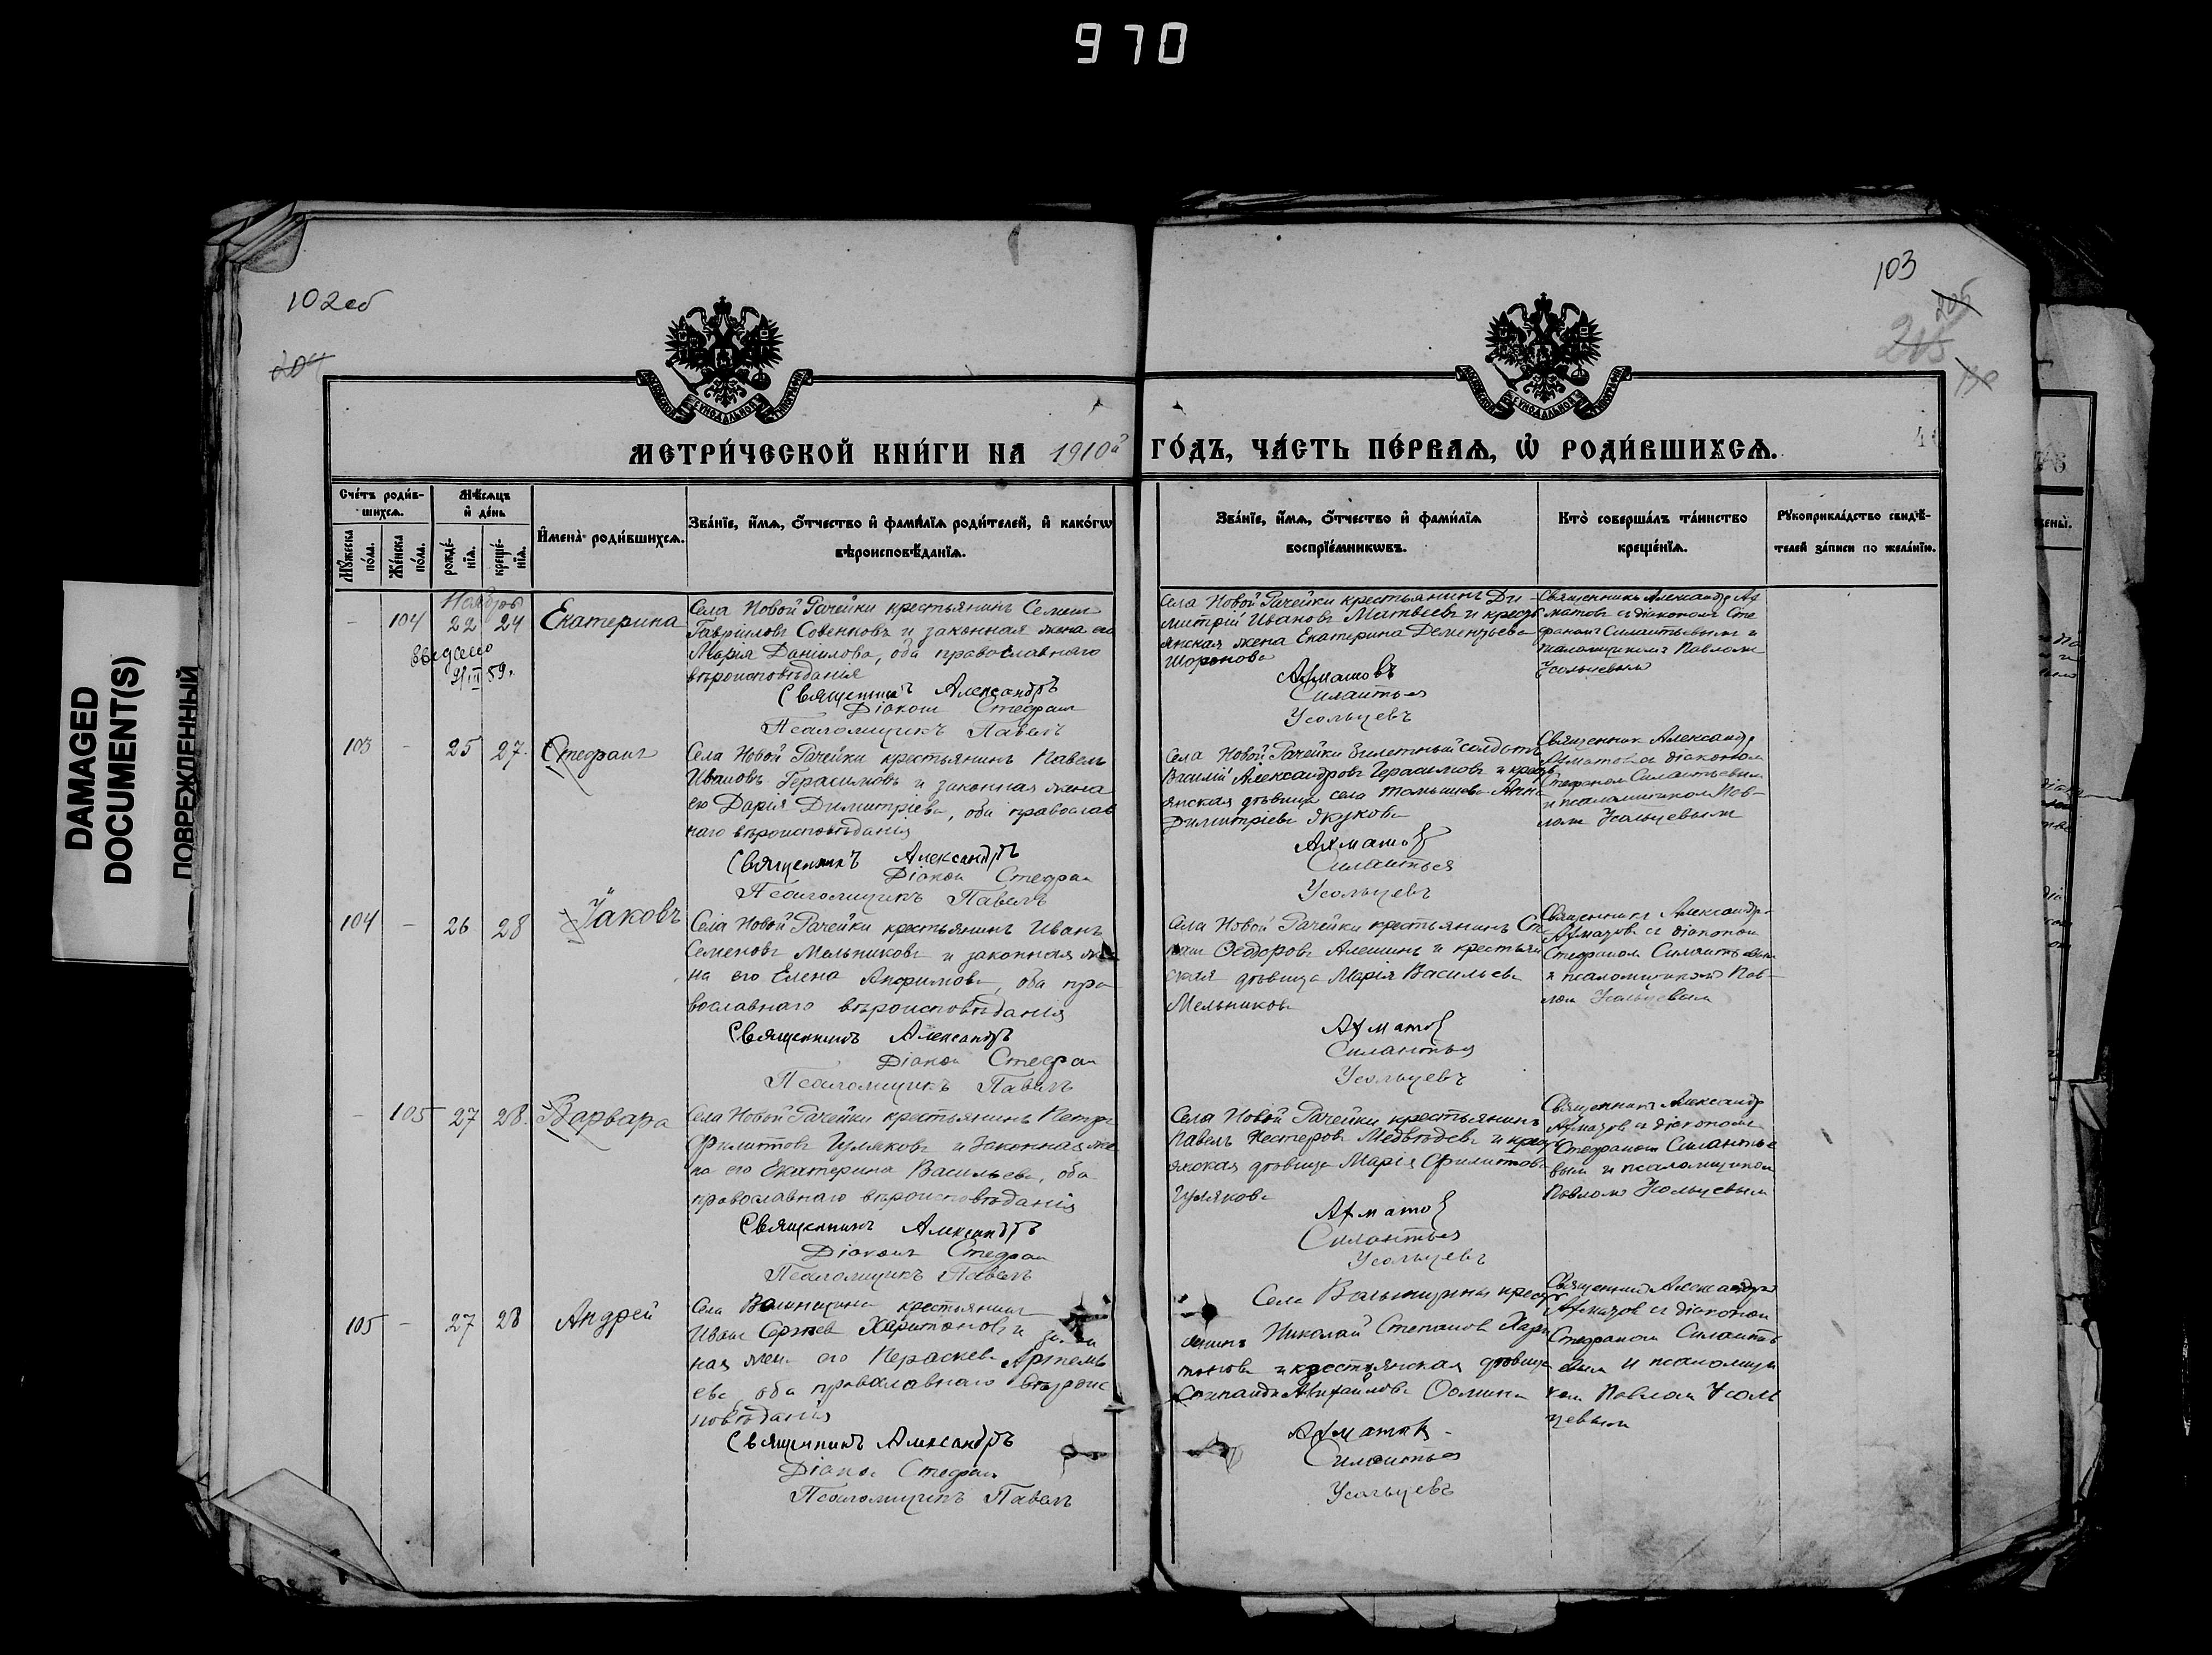 970
DAMAGED
DOCUMENT(S)
ПОВРЕЖДЕННЫЙ
102об
204
103
205
МЕТРИ́ЧЕСКОЙ КНИ́ГИ НА 1910й ГО́ДЪ, ЧА́СТЬ ПЕ́РВАѦ, Ѡ РОДИ́ВШИХСѦ.
Сче́тъ роди́в-
шихсѧ.
Мѣ́сѧцъ
и҆ де́нь
Мꙋ́жеска по́ла.
Же́нска по́ла.
рожде́-
нїѧ.
креще́-
нїѧ.
И҆мена̀ роди́вшихсѧ.
Зва́нїе, и҆́мѧ, ѻ҆́тчество и҆ фами́лїѧ роди́телей, и҆ како́гѡ
вѣроисповѣ́данїѧ.
Зва́нїе, и҆́мѧ, ѻ҆́тчество и҆ фами́лїѧ
воспрїе́мникѡвъ.
Кто̀ соверша́лъ та́инство
креще́нїѧ.
Рꙋкоприкла́дство свидѣ́-
телей за́писи по жела́нїю.
Ноября
- 104 22 24 Екатерина
выдано
9/III 59.
Села Новой Рачейки крестьянинъ Семенъ
Гавріиловъ Совенковъ и законная жена его
Марія Данилова, оба православнаго
вѣроисповѣданія
Священникъ Александръ
Діаконъ Стефанъ
Псаломщикъ Павелъ
Села Новой Рачейки крестьянинъ Ди-
митрій Ивановъ Матвеевъ и кресть
янская жена Екатерина Дементьева
Шоронова
Ахматовъ
Силантьев
Усольцевъ
Священникъ Александръ Ах
матовъ съ діакономъ Сте
фаномъ Силантьевымъ и
псаломщикомъ Павломъ
Усольцевымъ
103 - 25 27. Стефанъ
Села Новой Рачейки крестьянинъ Павелъ
Ивановъ Герасимовъ и законная жена
его Дарія Димитріева, оба православ
наго вѣроисповѣданія
Священникъ Александръ
Діаконъ Стефан
Псаломщикъ Павелъ
Села Новой Рачейки билетный солдатъ
Василій Александровъ Герасимовъ и кресть
янская дѣвица села Томышова Анна
Димитріева Якукова
Ахматов
Силантьев
Усольцевъ
Священник Александръ
Ахматовъ съ діакономъ
Стефаномъ Силантьевым
и псаломщикомъ Пав-
ломъ Усольцевымъ
104 - 26 28 Іаковъ
Села Новой Рачейки крестьянинъ Иванъ
Семеновъ Мельниковъ и законная же
на его Елена Анфимова, оба пра
вославнаго вѣроисповѣданія
Священникъ Александръ
Діакон Стефан
Псаломщикъ Павелъ
Села Новой Рачейки крестьянинъ Сте
панъ Ѳедоровъ Алешинъ и крестьян
ская дѣвица Марія Васильева
Мельникова
Ахматов
Силантьев
Усольцевъ
Священникъ Александръ
Ахматовъ съ діаконом
Стефаном Силантьевым
и псаломщикомъ Пав-
лом Усольцевым
- 105 27 28. Варвара
Села Новой Рачейки крестьянинъ Петръ
Филипповъ Гуляковъ и законная же
на его Екатерина Васильева, оба
православнаго вѣроисповѣданія
Священникъ Александръ
Діаконъ Стефан
Псаломщикъ Павелъ
Села Новой Рачейки крестьянинъ
Павелъ Нестеровъ Медвѣдевъ и кресть
янская дѣвица Марія Филиппова
Гулякова
Ахматов
Силантьев
Усольцевъ
Священникъ Александр
Ахматов съ діакономъ
Стефаномъ Силантье
вым и псаломщиком
Павломъ Усольцевым
105 - 27 28 Андрей
Села крестьянинъ
Иван Сергѣев Харитоновъ и
ная жена его Параскева Артемь
ева, оба православнаго вѣроис
повѣданія
Священникъ Александръ
Діакон Стефан
Псаломщикъ Павелъ
Села кресть
янинъ Николай Степанов Хари
тоновъ и крестьянская дѣвица
Ѳомина
Ахматов
Силантьев
Усольцевъ
Священник Александръ
Ахматов съ діаконом
Стефаном Силанть
евым и псаломщи
ком Павлом Усоль
цевым